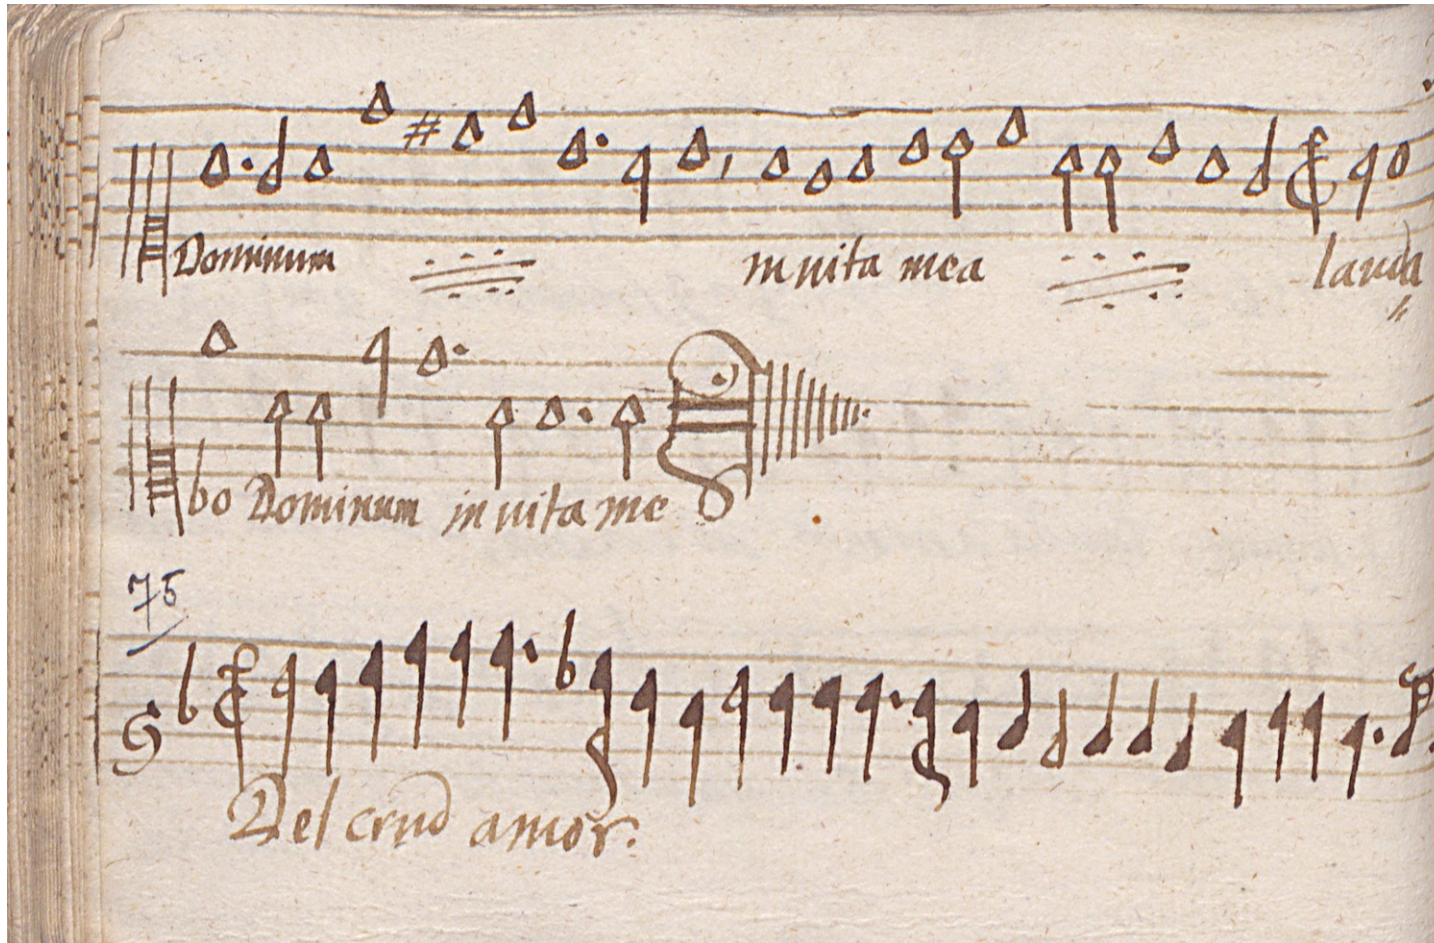 Dominum in vita mea lauda
bo Dominum in vita me
75
Del crud amor.